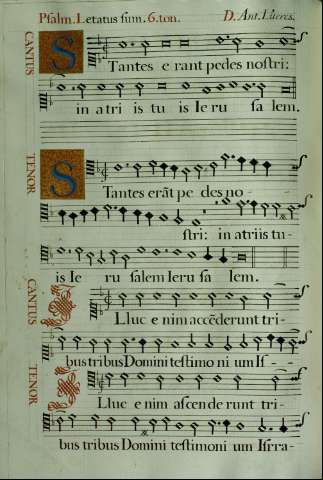 Psalm. Letatus sum. 6. ton. D. Ant. Lheres.
CANTUS
STantes e rant pedes nostri:
in a tri is tu is Ie ru sa lem.
TENOR
STantes erãt pe des no-
stri: in atriis tu-
is Ie ru salem Ieru sa lem.
CANTUS
ILluc e nim accẽderunt tri-
bus tribus Domini testimo ni um Is-
TENOR
ILluc e nim ascende runt tri-
bus tribus Domini testimoni um Isrra-